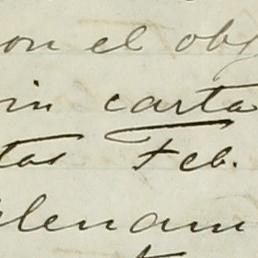 con el obj
in carta
tas Feb.
lenam